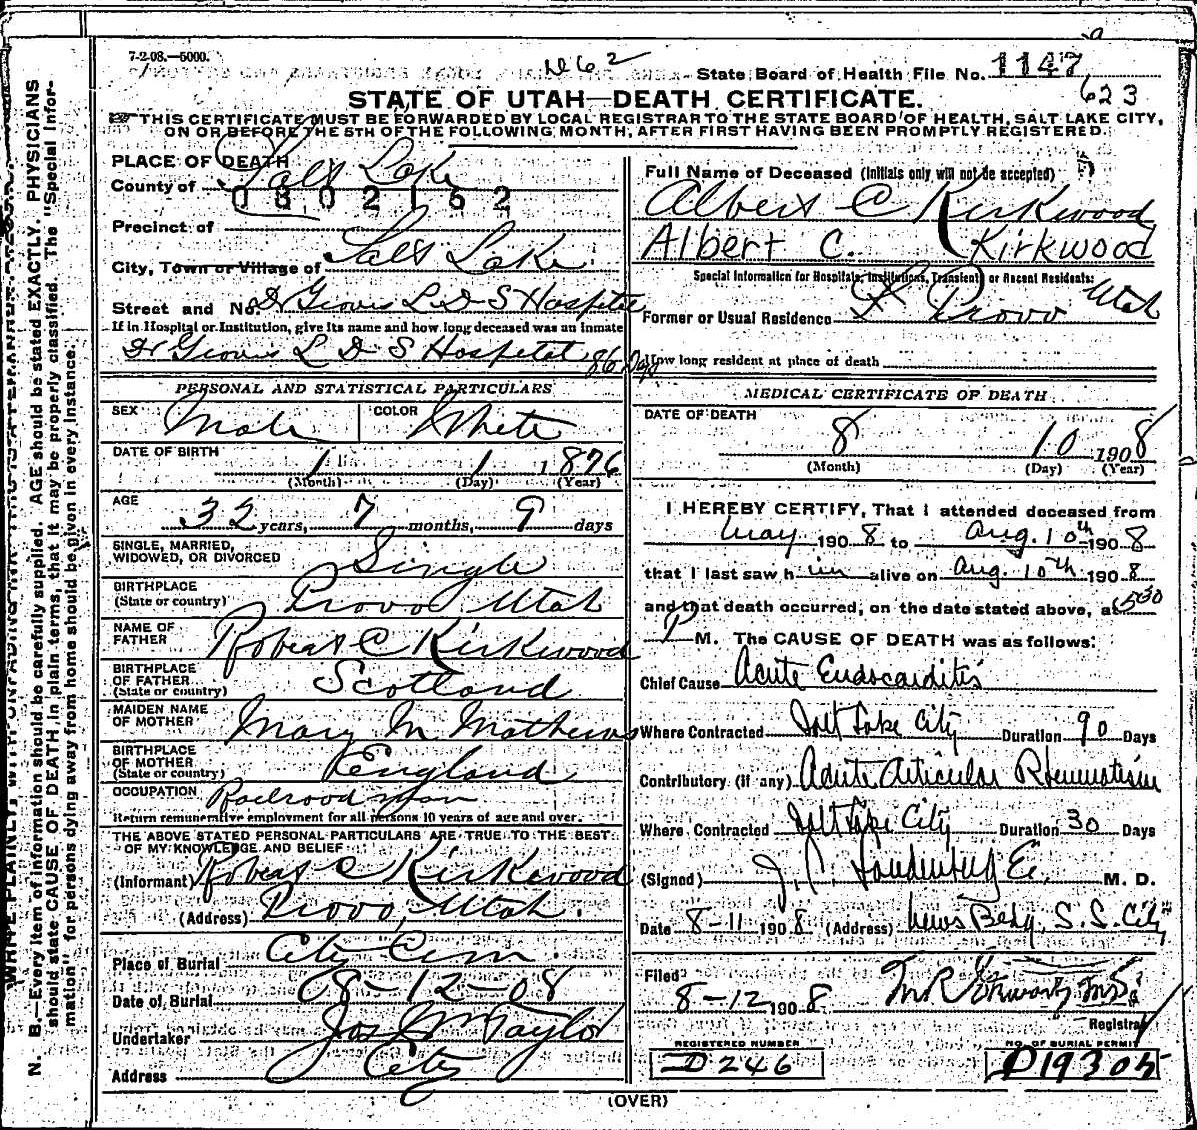 7-2-08.—5000.
State Board of Health File No. 1147
623
STATE OF UTAH—DEATH CERTIFICATE.
THIS CERTIFICATE MUST BE FORWARDED BY LOCAL REGISTRAR TO THE STATE BOARD OF HEALTH, SALT LAKE CITY,
ON OR BEFORE THE 5TH OF THE FOLLOWING MONTH, AFTER FIRST HAVING BEEN PROMPTLY REGISTERED.
PLACE OF DEATH
County of Salt Lake
0802162
Precinct of
City, Town or Village of Salt Lake
Street and No. Dr Groves L D S Hospital
If in Hospital or Institution, give its name and how long deceased was an inmate
Dr Groves L D S Hospital 86 Days
PERSONAL AND STATISTICAL PARTICULARS
SEX Male COLOR White
DATE OF BIRTH 1 1 1876
(Month) (Day) (Year)
AGE 32 years, 7 months, 9 days
SINGLE, MARRIED,
WIDOWED, OR DIVORCED Single
BIRTHPLACE
(State or country) Provo Utah
NAME OF
FATHER Robert C Kirkwood
BIRTHPLACE
OF FATHER
(State or country) Scotland
MAIDEN NAME
OF MOTHER Mary M Mathews
BIRTHPLACE
OF MOTHER
(State or country) England
OCCUPATION Railroad man
Return remunerative employment for all persons 10 years of age and over.
THE ABOVE STATED PERSONAL PARTICULARS ARE TRUE TO THE BEST
OF MY KNOWLEDGE AND BELIEF
(Informant) Robert C Kirkwood
(Address) Provo, Utah.
Place of Burial City Cem.
Date of Burial 08-12-08
Undertaker Jos Wm Taylor
Address City
Full Name of Deceased (Initials only will not be accepted)
Albert C Kirkwood
Albert C. Kirkwood
Special Information for Hospitals, Institutions, Transient, or Recent Residents:
Former or Usual Residence Provo Utah
How long resident at place of death
MEDICAL CERTIFICATE OF DEATH
DATE OF DEATH
8 10 1908
(Month) (Day) (Year)
I HEREBY CERTIFY, That I attended deceased from
May 1908 to Aug. 10th 1908
that I last saw him alive on Aug. 10th 1908
and that death occurred, on the date stated above, at 5 30
P M. The CAUSE OF DEATH was as follows:
Chief Cause Acute Endocarditis
Where Contracted Salt Lake City Duration 90 Days
Contributory (if any) Acute Articular Rheumatism
Where Contracted Salt Lake City Duration 30 Days
(Signed) M. D.
Date 8-11 1908 (Address) News Bldg, S. L. City
Filed 8-12 1908
Registrar
REGISTERED NUMBER
D246
NO. OF BURIAL PERMIT
D19305
(OVER)
N. B.—Every item of information should be carefully supplied. AGE should be stated EXACTLY. PHYSICIANS
should state CAUSE OF DEATH in plain terms, that it may be properly classified. The "Special Infor-
mation" for persons dying away from home should be given in every instance.